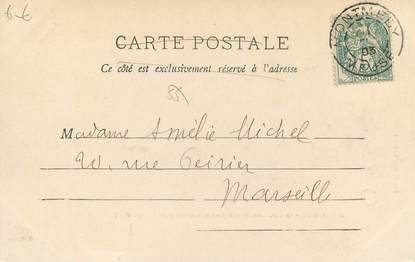 6-6
CARTE POSTALE
Ce côté est exclusivement réservé à l'adresse
MONTMÉDY
05
MEUSE
Madame Amélie Michel
20, rue
Marseille